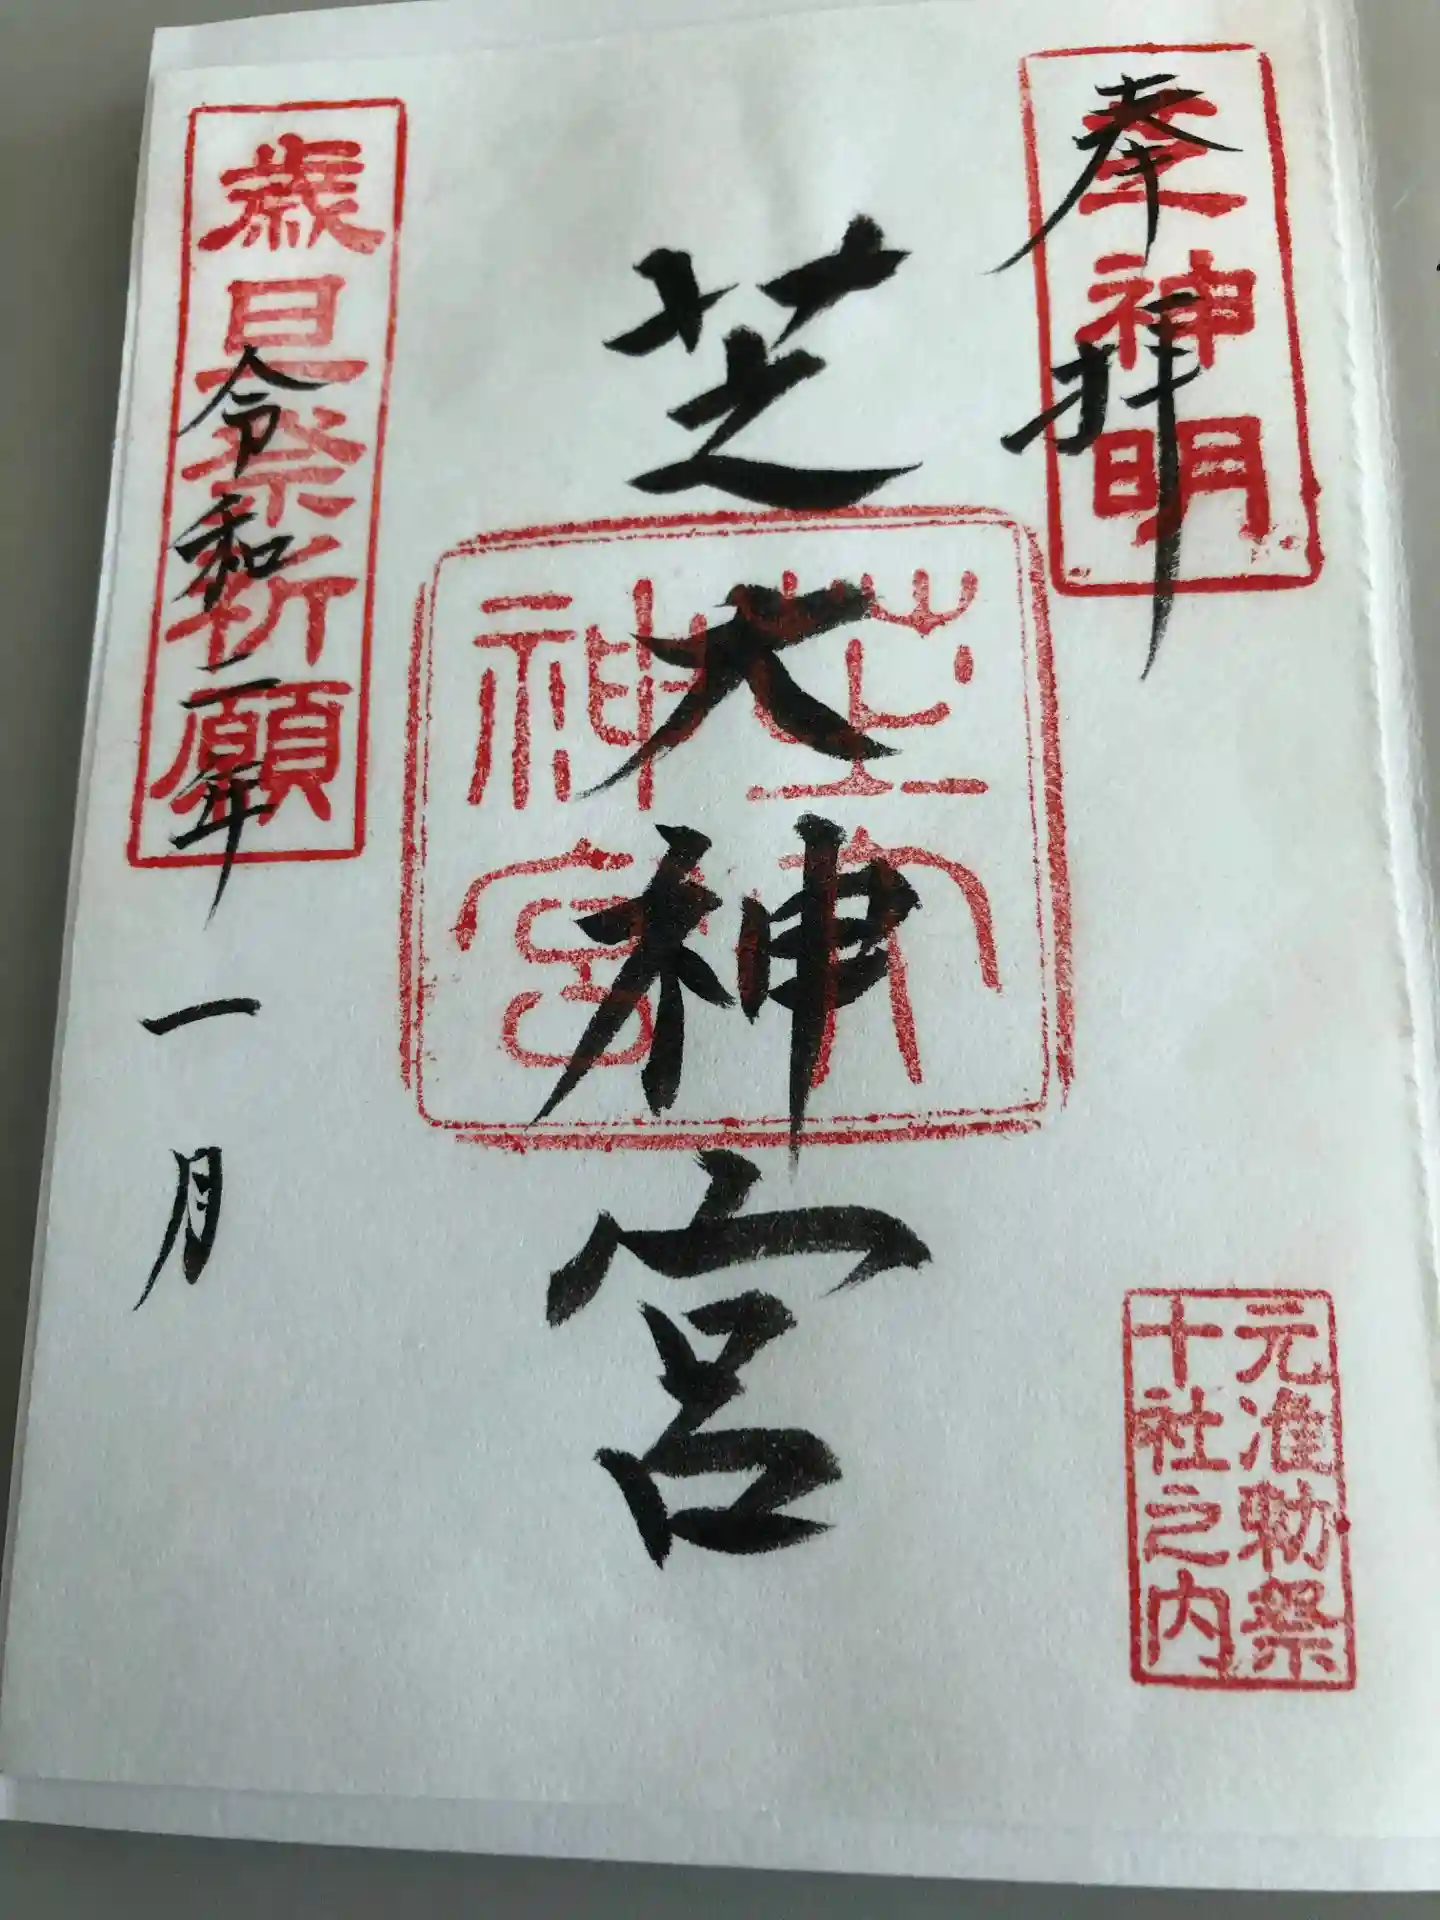 奉拝
芝神明
芝大神宮
芝大神宮
元准勅祭
十社之内
歳旦祭祈願
令和二年一月